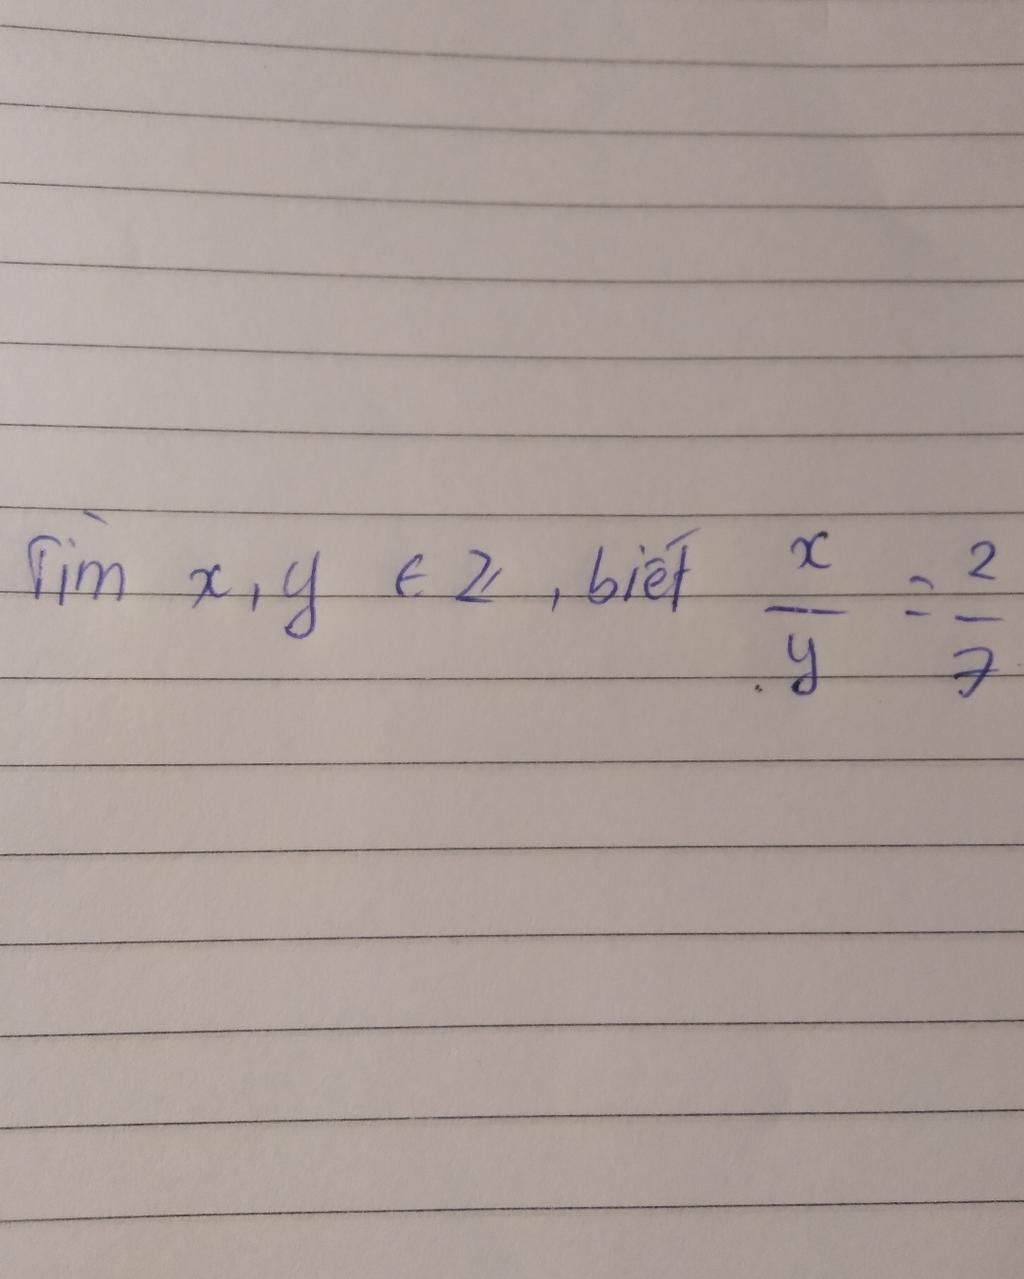 Tìm x, y ∈ ℤ, biết x/y = 2/7